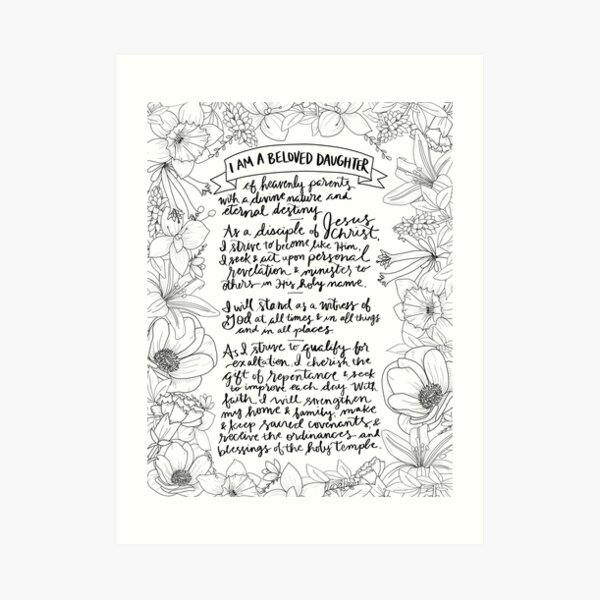 I AM A BELOVED DAUGHTER
of heavenly parents
with a divine nature and
eternal destiny
As a disciple of Jesus
Christ,
I strive to become like Him.
I seek & act upon personal
revelation & minister to
others in His holy name.
I will stand as a witness of
God at all times & in all things
and in all places.
As I strive to qualify for
exaltation, I cherish the
gift of repentance & seek
to improve each day. With
faith, I will strengthen
my home & family, make
& keep sacred covenants, &
receive the ordinances and
blessings of the holy temple.